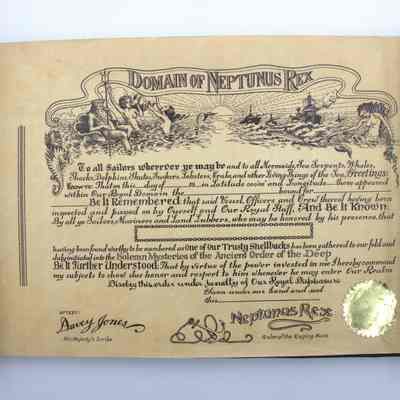 DOMAIN OF NEPTUNUS REX
To all Sailors wherever ye may be and to all Mermaids, Sea Serpents, Whales,
Sharks, Dolphins, Skates, Suckers, Lobsters, Crabs, and other Living Things of the Sea, Greetings:
Know ye: That on this day of in Latitude 00000 and Longitude there appeared
within Our Royal Domain the bound for
Be It Remembered that said Vessel Officers and Crew thereof having been
inspected and passed on by Ourself and Our Royal Staff, And Be It Known:
By all ye Sailors, Mariners and Land Lubbers, who may be honored by his presence, that
having been found worthy to be numbered as One of Our Trusty Shellbacks has been gathered to our fold and
duly initiated into the Solemn Mysteries of the Ancient Order of the Deep
Be It Further Understood: That by virtue of the power invested in me I hereby command
my subjects to show due honor and respect to him whenever he may enter Our Realm
Disobey this order under penalty of Our Royal Displeasure
Given under our hand and seal
this
ATTEST:
Davey Jones
His Majesty's Scribe
Neptunus Rex
Ruler of the Raging Main